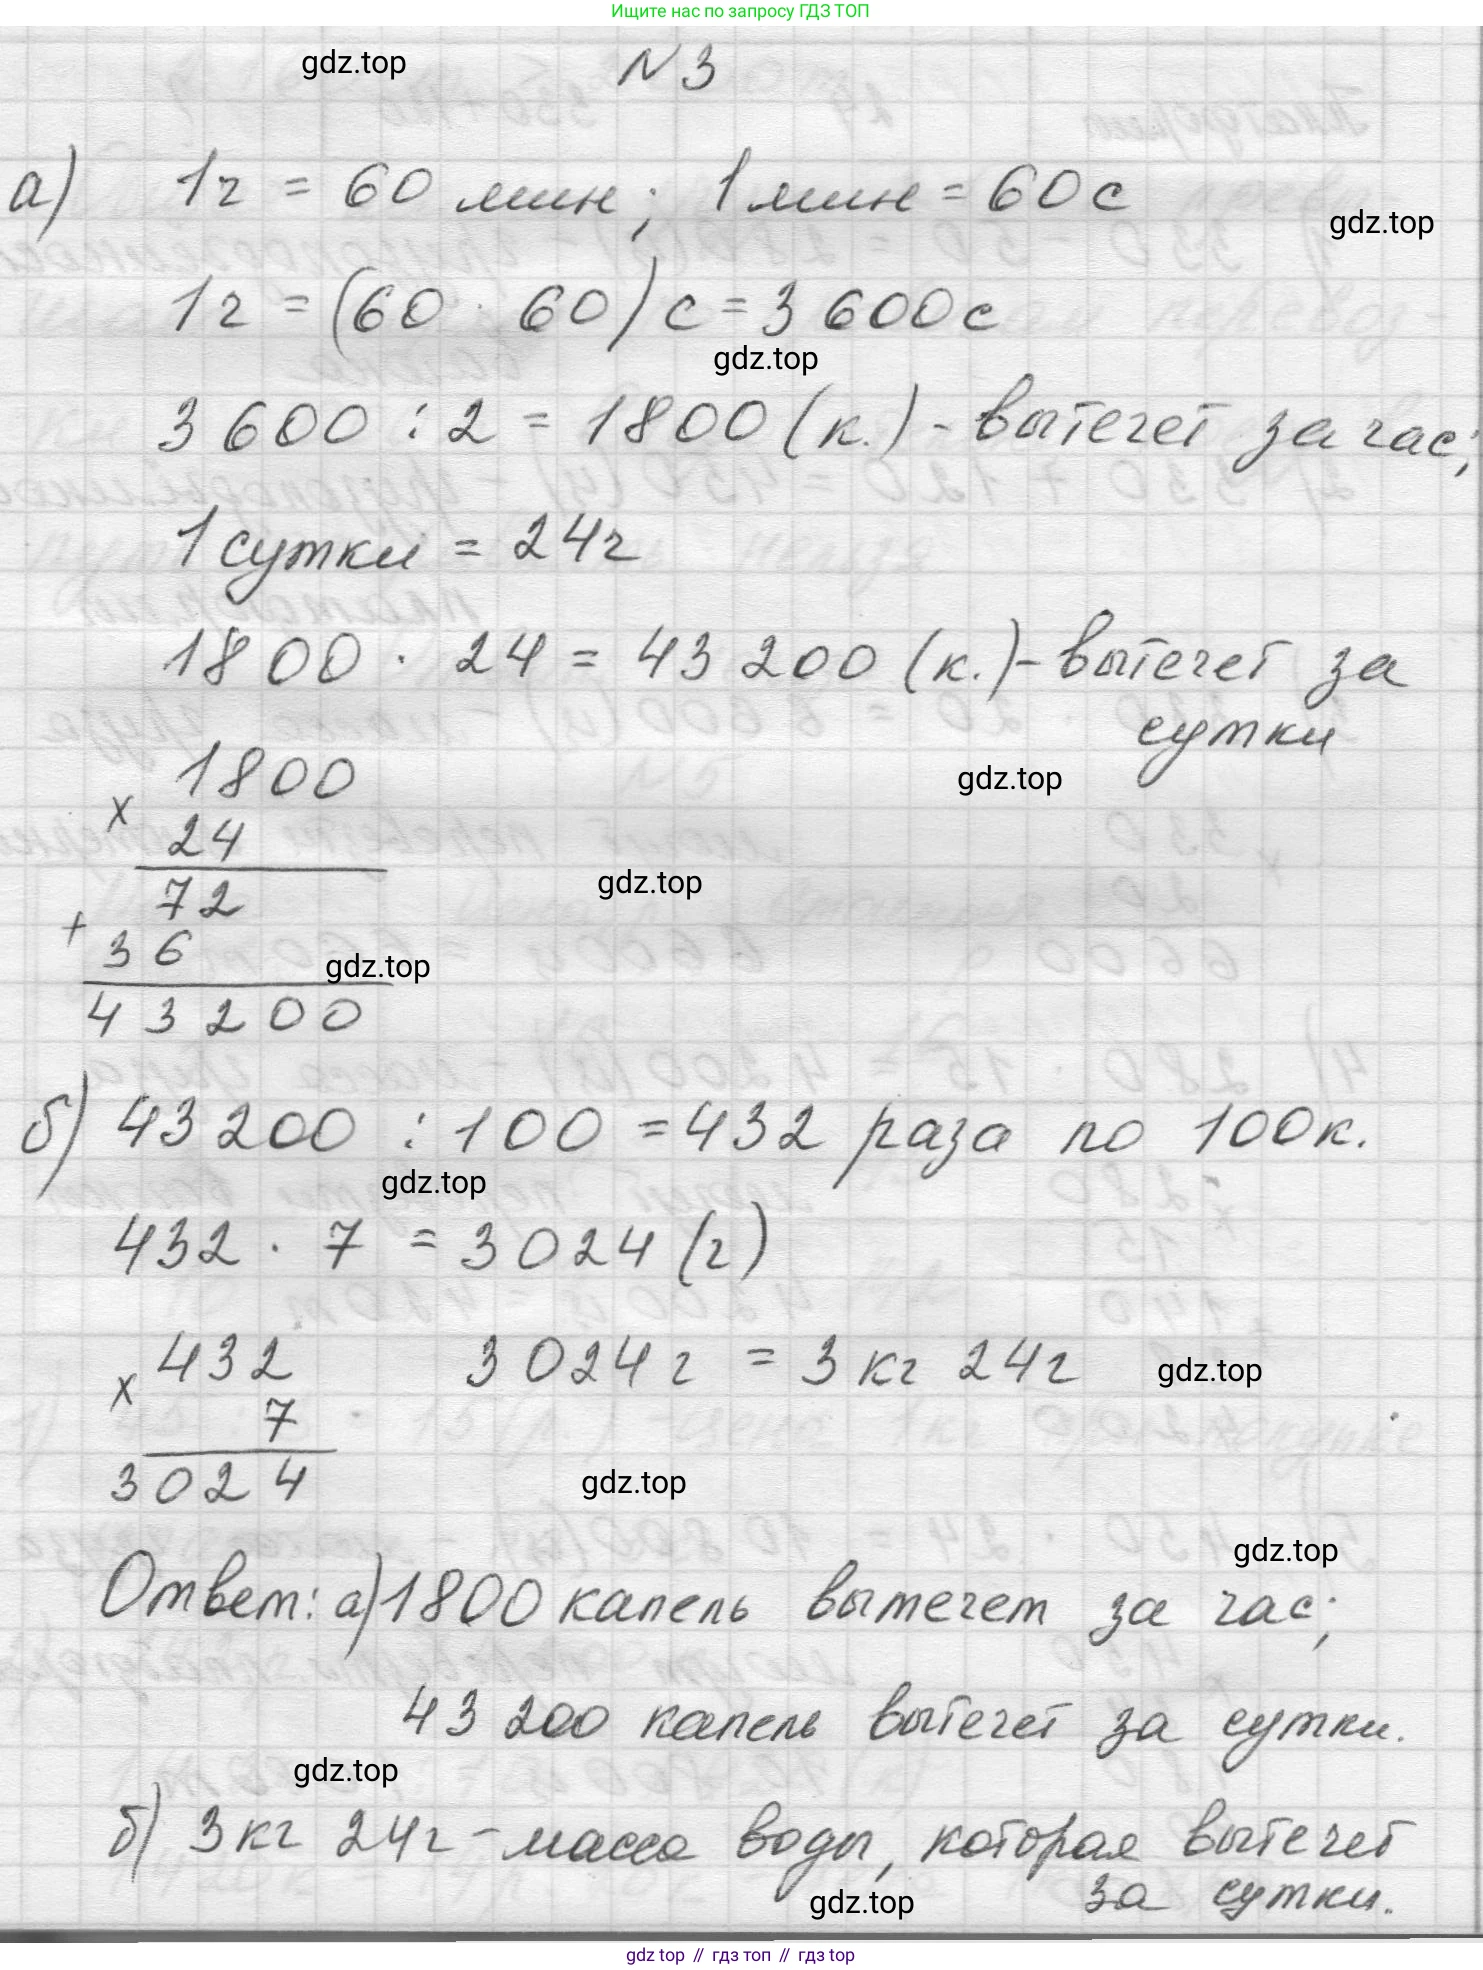 Ищите нас по запросу ГДЗ ТОП
gdz.top
N 3
а) 1ч = 60 мин; 1 мин = 60 с
gdz.top
1ч = (60 · 60) с = 3 600 с
gdz.top
3 600 : 2 = 1800 (к.) - вытечет за час;
1 сутки = 24ч
1800 · 24 = 43 200 (к.) - вытечет за
сутки
gdz.top
1800
x
24
gdz.top
72
+
36
gdz.top
43200
б) 43 200 : 100 = 432 раза по 100к.
gdz.top
432 · 7 = 3024 (г)
432
x
3 024 г = 3 кг 24 г
gdz.top
7
3024
gdz.top
gdz.top
Ответ: а) 1800 капель вытечет за час;
43 200 капель вытечет за сутки.
gdz.top
б) 3 кг 24 г - масса воды, которая вытечет
за сутки.
gdz.top
gdz top // гдз топ // гдз top